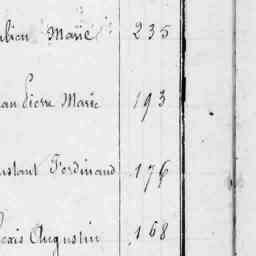 bien Marie 235
an Pierre Marie 193
nstant Ferdinand 176
çois Augustin 168